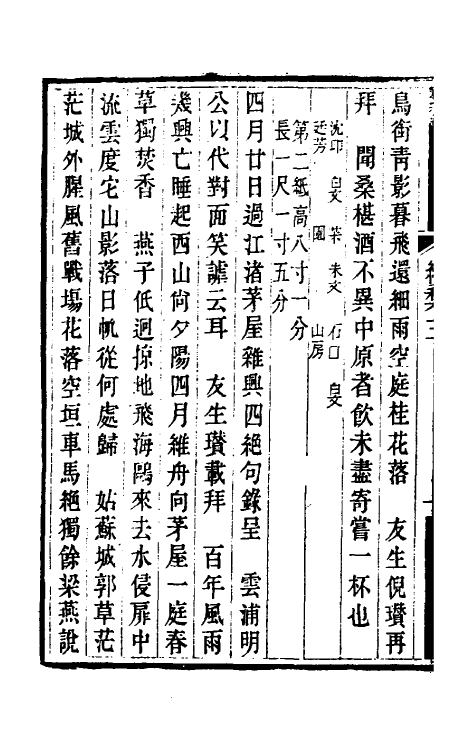 鳥銜青影暮飛還細雨空庭桂花落　友生倪瓚再
拜　聞桑椹酒不異中原者飲未盡寄嘗一杯也
沈印　白文　葉　朱文　石口　白文
廷芳　園　山房
第二紙高八寸一分
長一尺一寸五分
四月廿日過江渚茅屋雜興四絕句錄呈　雲浦明
公以代對面笑謔云耳　友生瓚載拜　百年風雨
幾興亡睡起西山尙夕陽四月維舟向茅屋一庭春
草獨焚香　燕子低迴掠地飛海鷗來去水侵扉中
流雲度宅山影落日帆從何處歸　姑蘇城郭草茫
茫城外腥風舊戰場花落空垣車馬絕獨餘梁燕說